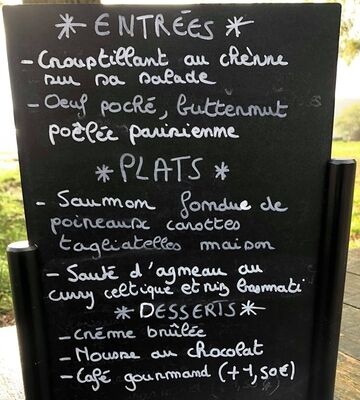 * ENTRÉES *
- Croustillant au chèvre
sur sa salade
- Oeuf poché, butternut
poêlée parisienne
* PLATS *
- Saumon fondue de
poireaux carottes
tagliatelles maison
- Sauté d'agneau au
curry celtique et riz basmati
* DESSERTS *
- Crème brûlée
- Mousse au chocolat
- Café gourmand (+1,50€)